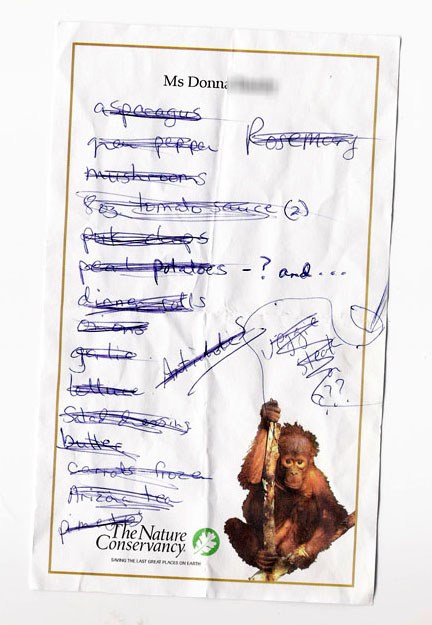 Ms Donna
asparagus
pepper
Rosemary
mushrooms
8oz tomato sauce (2)
pork chops
potatoes - ? and ...
dinner rolls
onions
garlic
veggie
??
lettuce
Salad dressing
butter
carrots frozen
Arizona tea
The Nature
Conservancy.
SAVING THE LAST GREAT PLACES ON EARTH